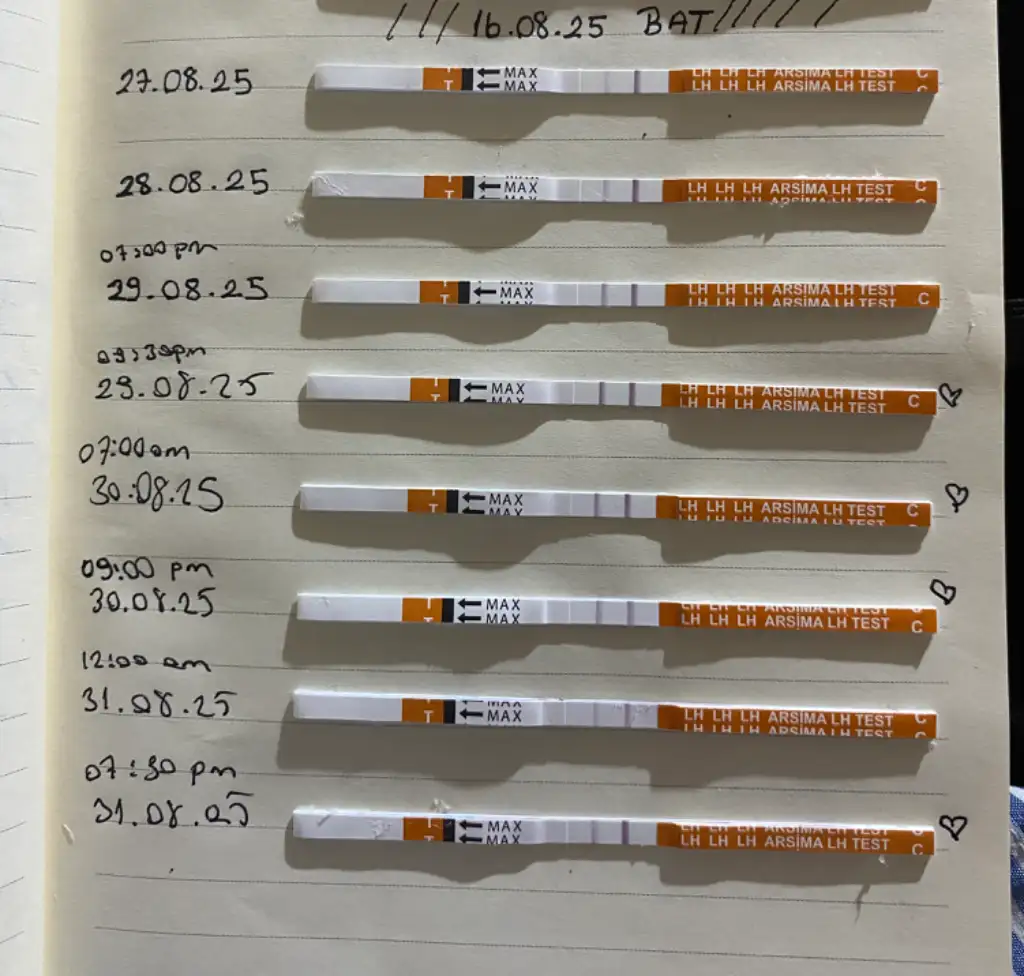 / / / 16.08.25 BAT / / / / /
27.08.25
T MAX LH LH LH ARSİMA LH TEST C
T MAX LH LH LH ARSİMA LH TEST
28.08.25
T MAX LH LH LH ARSİMA LH TEST C
LH LH LH ARSİMA LH TEST
07:00 pm
29.08.25
T MAX LH LH LH ARSİMA LH TEST C
LH LH LH ARSİMA LH TEST
09:30pm
29.08.25
T MAX LH LH LH ARSİMA LH TEST C
T MAX LH LH LH ARSİMA LH TEST
07:00am
30.08.25
T MAX LH LH LH ARSİMA LH TEST C
T MAX LH LH LH ARSİMA LH TEST
09:00 pm
30.08.25
T MAX LH LH LH ARSİMA LH TEST C
T MAX LH LH LH ARSİMA LH TEST C
12:00 am
31.08.25
T MAX LH LH LH ARSİMA LH TEST C
MAX LH LH LH ARSİMA LH TEST C
07:30 pm
31.08.25
T MAX LH LH LH ARSİMA LH TEST C
T MAX LH LH LH ARSİMA LH TEST C